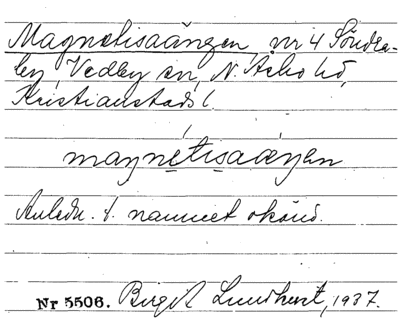 Magnetisaängen, nr 4 Söndra-
by, Vedby sn, N. Åsbo hd,
Kristianstads l.
magnétisaäŋen
Anledn. t. namnet okänd.
Nr 5506. Birgit Lundkvist, 1937.